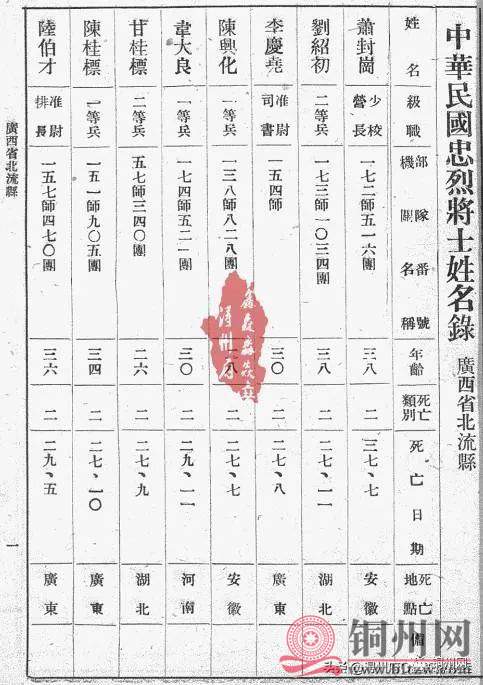 中華民國忠烈將士姓名錄 廣西省北流縣
姓名 級職 部隊番號 機關名稱 年齡 死亡類別 死亡日期 死亡地點 備
蕭封崗 少校營長 一七二師五一六團 三八 二 三七、七 安徽
劉紹初 二等兵 一七三師一〇三四團 三八 二 二七、一一 湖北
李慶堯 准尉司書 一五四師 三〇 二 二七、八 廣東
陳興化 一等兵 一三八師八二八團 二 二七、七 安徽
韋大良 一等兵 一七四師五二一團 三〇 二 二九、一一 河南
甘桂標 二等兵 五七師三四〇團 二六 二 二七、九 湖北
陳桂標 一等兵 一五一師九〇五團 三四 二 二七、一〇 廣東
陸伯才 准尉排長 一五七師四七〇團 三六 二 二九、五 廣東
廣西省北流縣
一
潯州府
铜州网